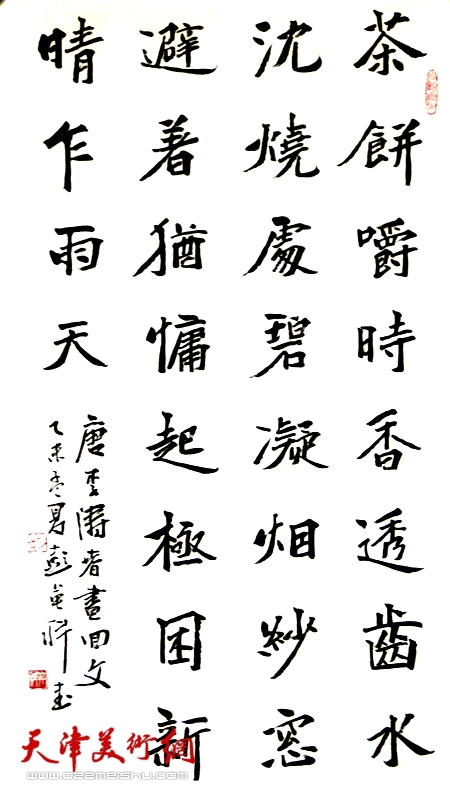 茶餅嚼時香透齒水
沈燒處碧凝烟紗窓
避著猶慵起極困新
晴乍雨天
唐李濤春晝回文
乙未孟夏彭英科書
天津美術網
www.022meishu.com